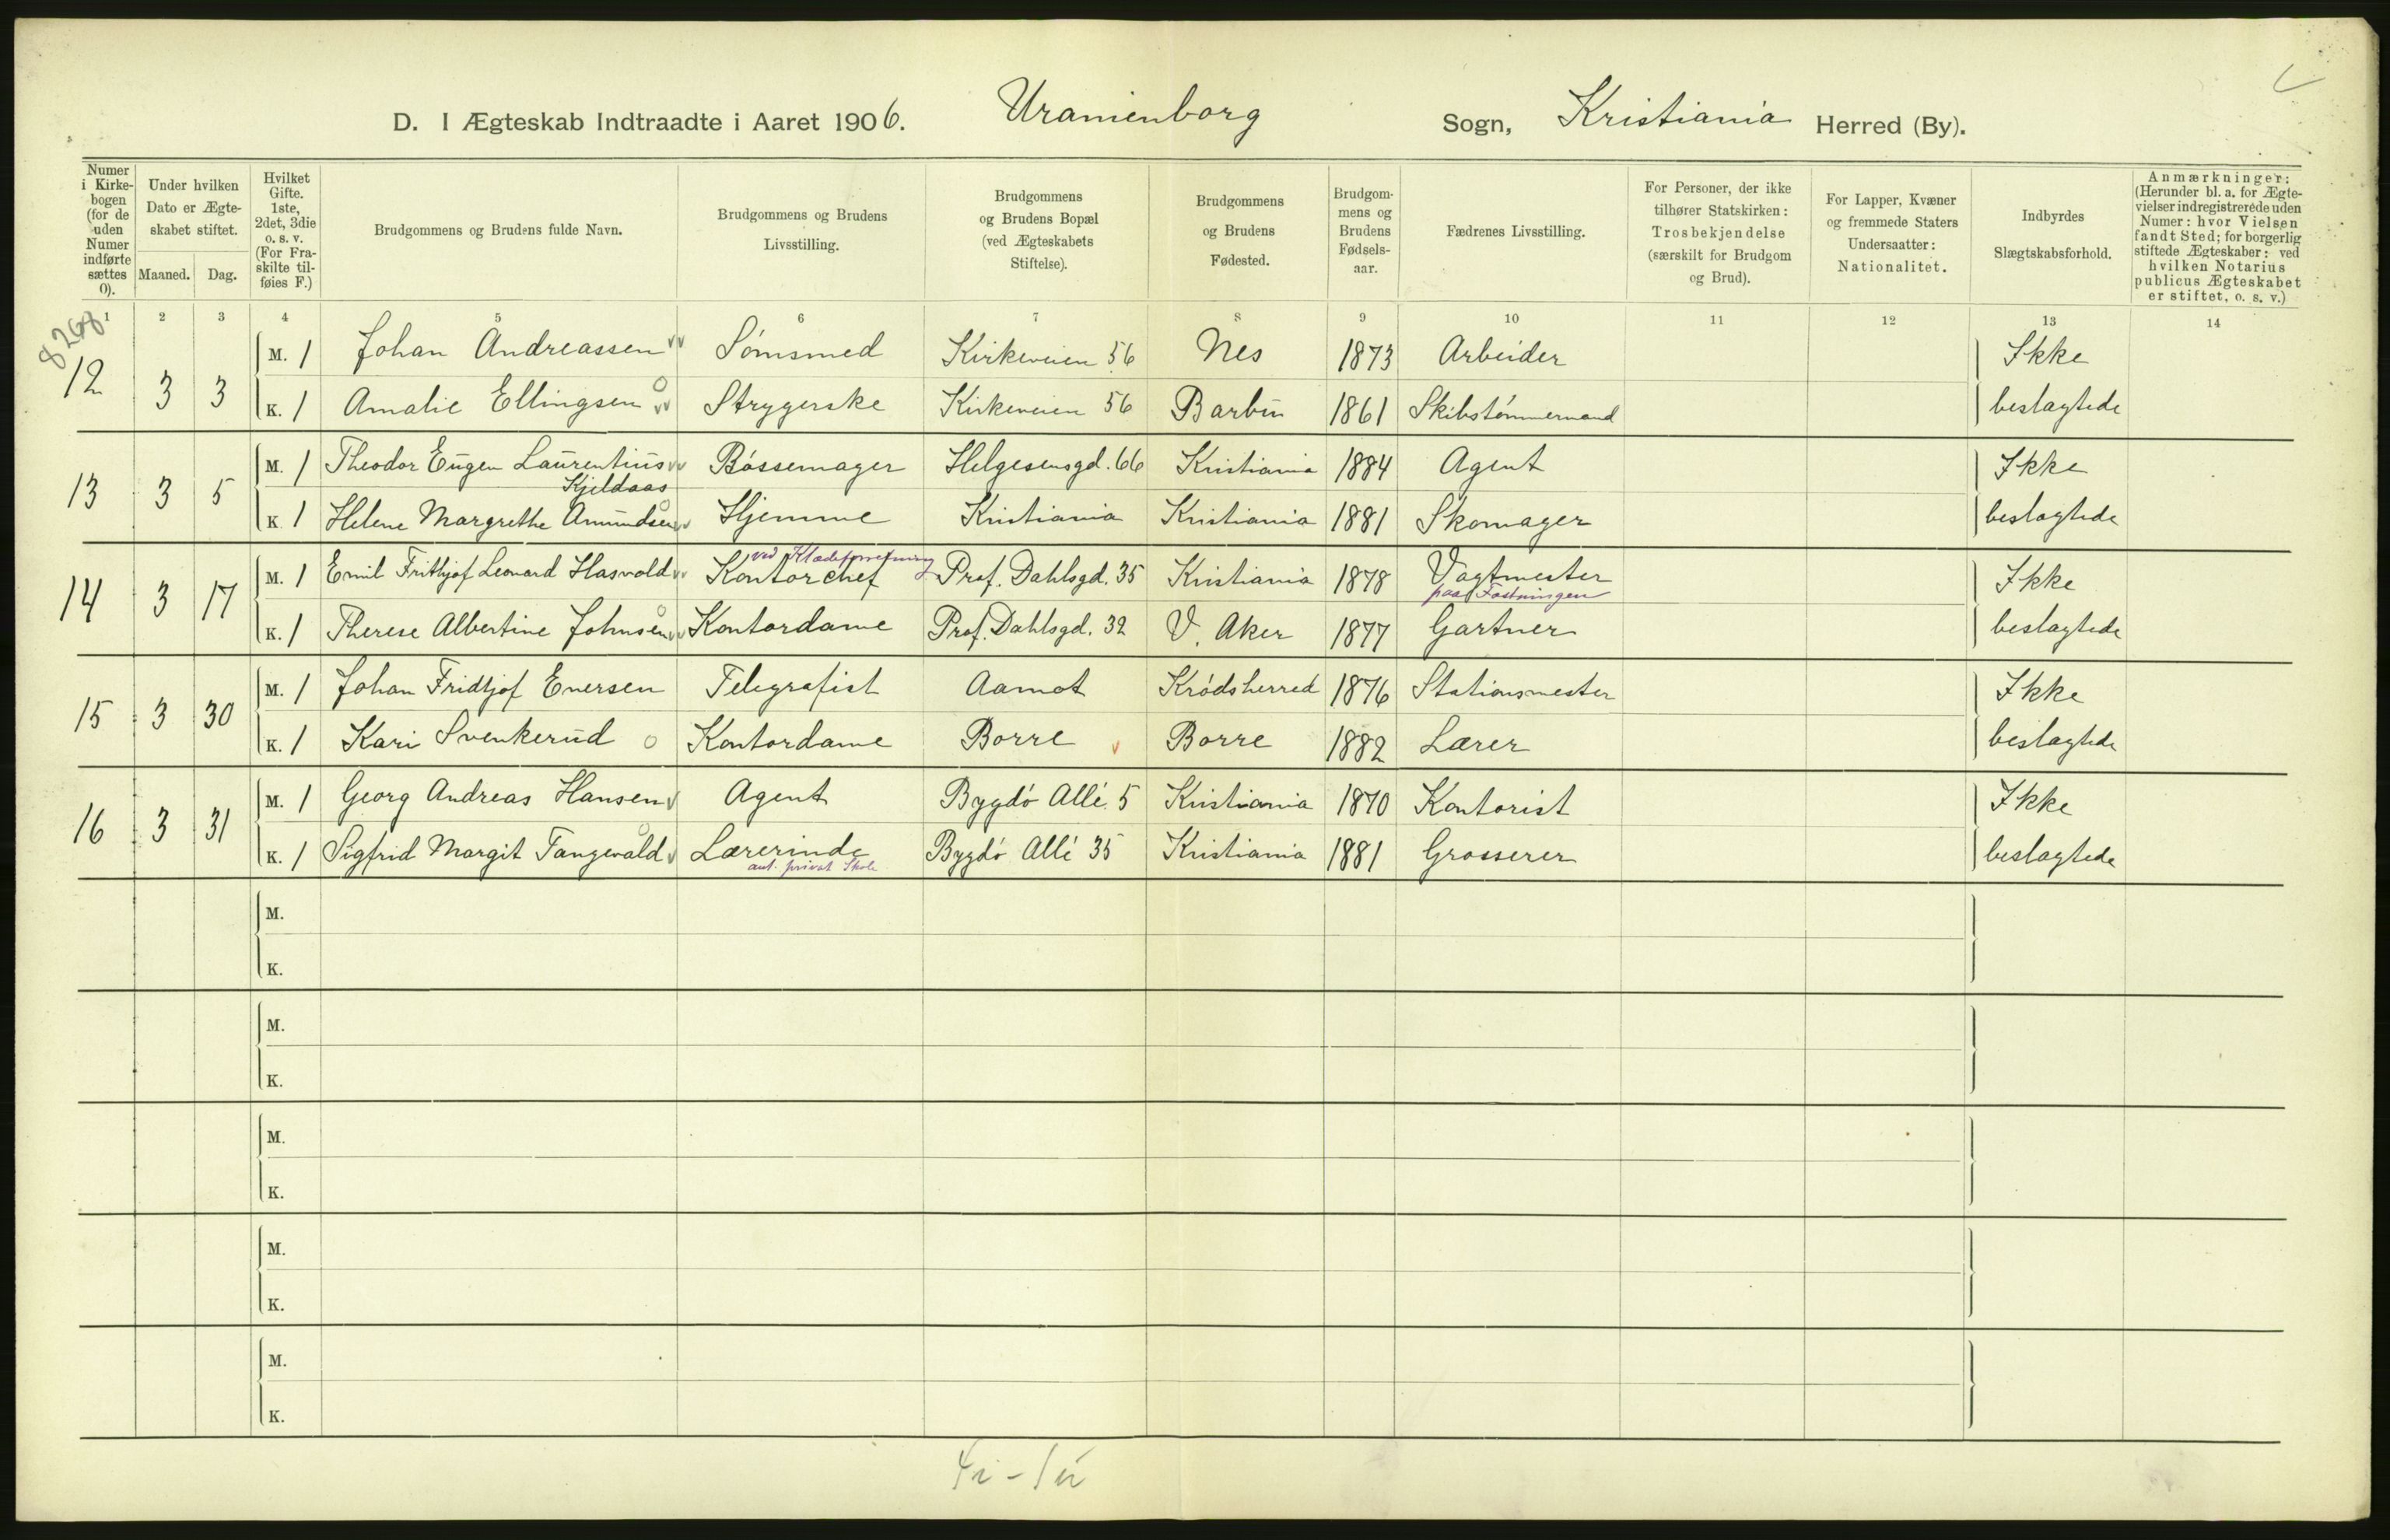 D. I Ægteskab Indtraadte i Aaret 1906. Uranienborg Sogn, Kristiania Herred (By).
Numer i Kirkebogen (for de uden Numer indførte sættes 0).
Under hvilken Dato er Ægteskabet stiftet.
Maaned. Dag.
Hvilket Gifte. 1ste, 2det, 3die o. s. v. (For Fraskilte tilføies F.)
Brudgommens og Brudens fulde Navn.
Brudgommens og Brudens Livsstilling.
Brudgommens og Brudens Bopæl (ved Ægteskabets Stiftelse).
Brudgommens og Brudens Fødested.
Brudgommens og Brudens Fødselsaar.
Fædrenes Livsstilling.
For Personer, der ikke tilhører Statskirken: Trosbekjendelse (særskilt for Brudgom og Brud).
For Lapper, Kvæner og fremmede Staters Undersaatter: Nationalitet.
Indbyrdes Slægtskabsforhold.
Anmærkninger: (Herunder bl. a. for Ægtevielser indregistrerede uden Numer: hvor Vielsen fandt Sted; for borgerlig stiftede Ægteskaber: ved hvilken Notarius publicus Ægteskabet er stiftet, o. s. v.)
1 2 3 4 5 6 7 8 9 10 11 12 13 14
12 3 3
M. 1 Johan Andreassen Sömsmed Kirkeveien 56 Nes 1873 Arbeider Ikke
K. 1 Amalie Ellingsen Strygerske Kirkeveien 56 Barbu 1861 Skibstömmermand beslagtede
13 3 5
M. 1 Theodor Eugen Laurentius Kjeldaas Bössemager Helgesensgd. 66 Kristiania 1884 Agent Ikke
K. 1 Helene Margrethe Amundsen Hjemme Kristiania Kristiania 1881 Skomager beslagtede
14 3 17
M. 1 Emil Frithjof Leonard Hasvold Kontorchef ved Klædeforretning Prof. Dahlsgd. 35 Kristiania 1878 Vagtmester paa Fæstningen Ikke
K. 1 Therese Albertine Johnsen Kontordame Prof. Dahlsgd. 32 V. Aker 1877 Gartner beslagtede
15 3 30
M. 1 Johan Fridtjof Eversen Telegrafist Aamot Krödsherred 1876 Stationsmester Ikke
K. 1 Kari Svenkerud Kontordame Borre Borre 1882 Lærer beslagtede
16 3 31
M. 1 Georg Andreas Hansen Agent Bygdö Allé 5 Kristiania 1870 Kontorist Ikke
K. 1 Sigfrid Margit Tangevald Lærerinde ant. privat Skole Bygdö Allé 35 Kristiania 1881 Grosserer beslagtede
M.
K.
M.
K.
M.
K.
M.
K.
M.
K.